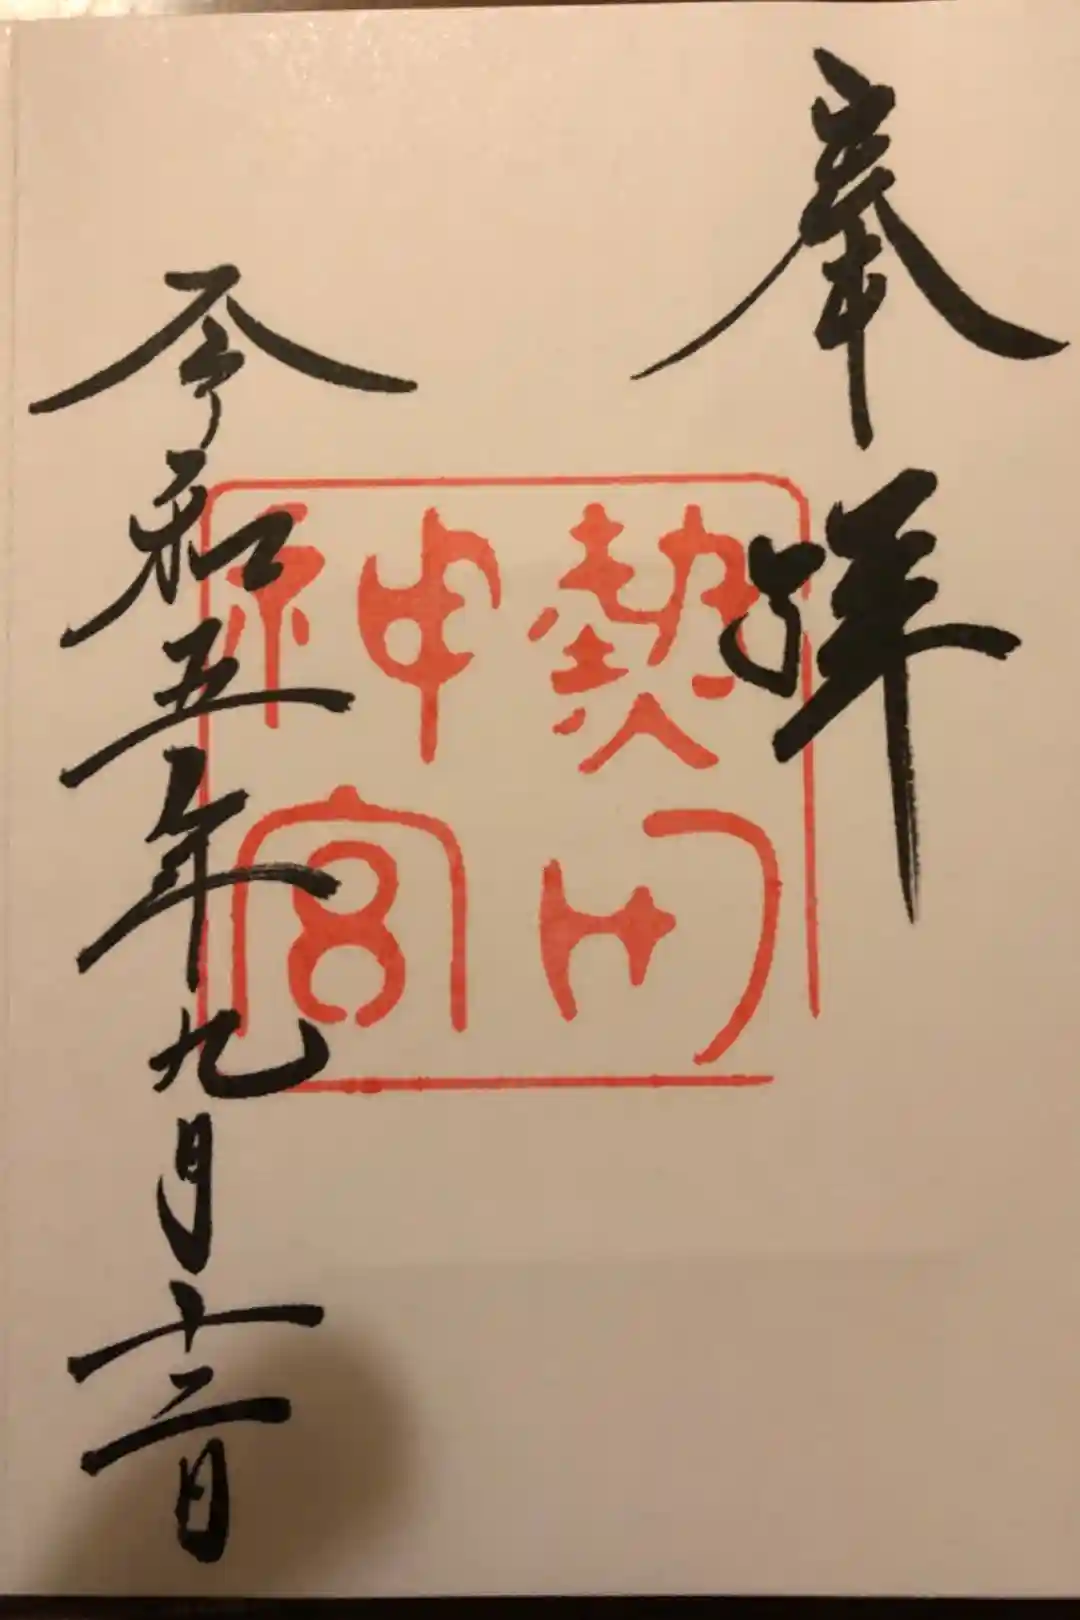 奉拝
熱田
神宮
令和五年九月十二日